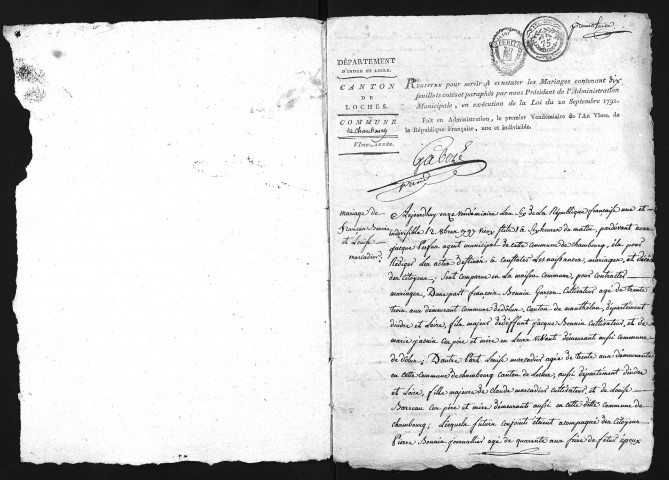 premier feuillet
DÉPARTEMENT
D'INDRE ET LOIRE.
CANTON
DE
LOCHES.
COMMUNE
de Chambourg
VIme. ANNÉE.
REGISTRE pour servir à constater les Mariages contenant dix
feuillets cotés et paraphés par nous Président de l'Administration
Municipale, en exécution de la Loi du 20 Septembre 1792.
Fait en Administration, le premier Vendémiaire de l'An VIme. de
la République Française, une et indivisible.
mariage de
François Bonnin
et Louise
marcadier
Aujourdhuy onze vendémiaire Lan Six de La République française une et
indivisible
jacque agent municipal de cette commune de chambourg, élu pour
Rédiger les actes destinés à constater les naissances, mariages, et décès
des citoyens; Sont comparu en la maison commune, pour contracter
mariage, Dune part françois Bonnin Garçon Cultivateur agé de trente
trois ans demeurant commune dedolus, canton de manthelan, département
dindre et Loire, fils majeur dedeffunt jacque Bonnin cultivateur, et de
marie jasnin ses père et mère en Leurs vivant demeurant aussi commune
de dolus; Dautre Part Louise marcadier agée de trente ans demeurante
en cette commune dechambourg canton de Loches, aussi département dindre
et Loire, fille majeure de claude marcadier cultivateur, et de Louise
Barreau ses père et mère demeurants aussi en cette ditte commune de
chambourg; Lesquels futurs conjoints étaient acompagné des citoyens
Pierre Bonnin journallier agé de quarante ans frère du futur époux